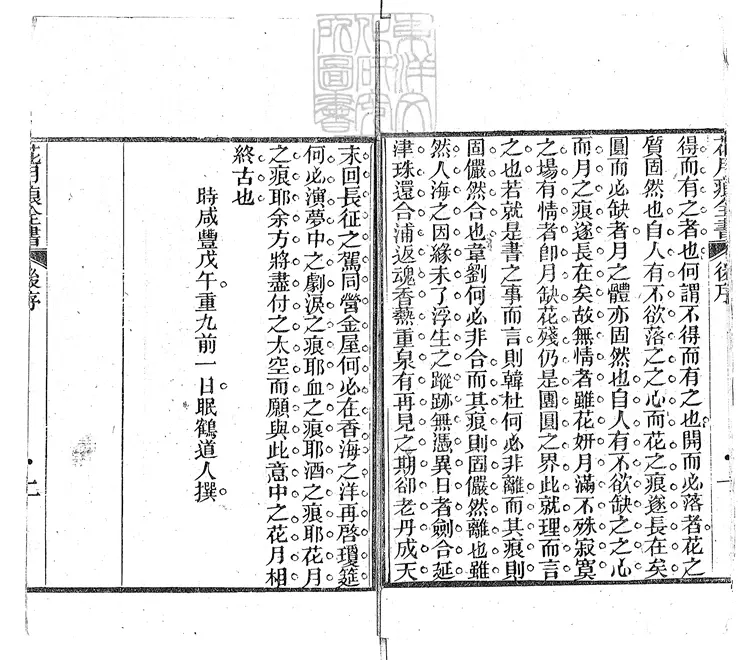 東洋文
化研究
所圖書
花月痕全書 後序 一
得而有之者也何謂不得而有之也開而必落者花之
質固然也自人有不欲落之之心而花之痕遂長在矣
圓而必缺者月之體亦固然也自人有不欲缺之之心
而月之痕遂長在矣故無情者雖花妍月滿不殊寂寞
之場有情者卽月缺花殘仍是團圓之界此就理而言
之也若就是書之事而言則韓杜何必非離而其痕則
固儼然合也韋劉何必非合而其痕則固儼然離也雖
然人海之因緣未了浮生之蹤跡無憑異日者劍合延
津珠還合浦返魂香爇重泉有再見之期卻老丹成天
末回長征之駕同營金屋何必在香海之洋再啓瓊筵
何必演夢中之劇淚之痕耶血之痕耶酒之痕耶花月
之痕耶余方將盡付之太空而願與此意中之花月相
終古也
時咸豐戊午重九前一日眠鶴道人撰
花月痕全書 後序 二